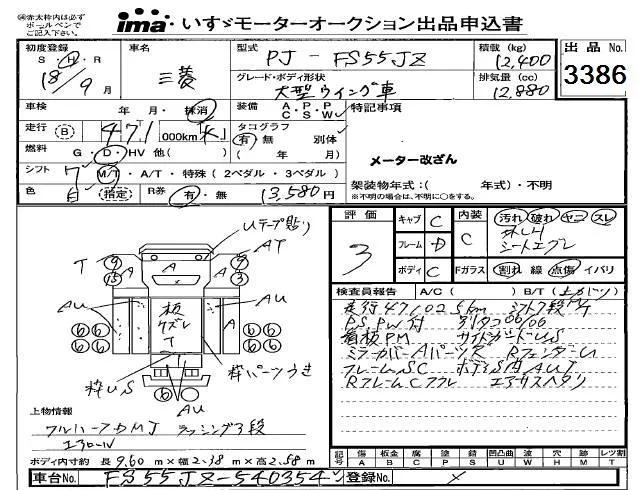 ㊟赤太枠内は必ず
ボールペンで
ご記入下さい。
ima いすゞモーターオークション出品申込書
初度登録 車名 型式 PJ-FS55JZ 積載 (kg) 12,400 出品No.
S・H・R 18/9月 三菱 グレード・ボディ形状 大型ウイング車 排気量 (cc) 12,880 3386
車検 年・月・抹消 装備 A・P・P C・S・W 特記事項
走行 B 471 000km K タコグラフ 有 無 別体
燃料 G・D・HV 他( ) ( 年 月) メーター改ざん
シフト 7 M/T・A/T・特殊 (2ペダル・3ペダル)
架装物年式:( 年式)・不明
※不明の場合は、不明に○をする。
色 白 指定 R券 有・無 13,580円
評価 3 キャブ C 内装 C 汚れ 破れ ヤニ スレ
フレーム D シートエグレ
ボディ C Fガラス 割れ 線 点傷 イバリ
検査員報告 A/C ( ) B/T ( )
走行471025km シフト7段
PS PW付
看板PM サイドガードUS
ミラーカバーAパーツ欠 RフェンダーU
フレームSC ボディS内AUT
RフレームCフクレ エアサスヘタリ
Uテープ貼り
AT
T
A
AU
板
ズレ
T
枠US
枠パーツうき
AU
上物情報
フルハーフDMJ ラッシング3段
エアロール
ボディ内寸約 長9.60m×幅2.38m×高2.58m
記号 傷 A 板金 B 腐 C 塗 P 錆 S 凹凸曲 U 波 W 穴 H 跡 M レツ割 T
車台No. FS55JZ-540354 登録No.